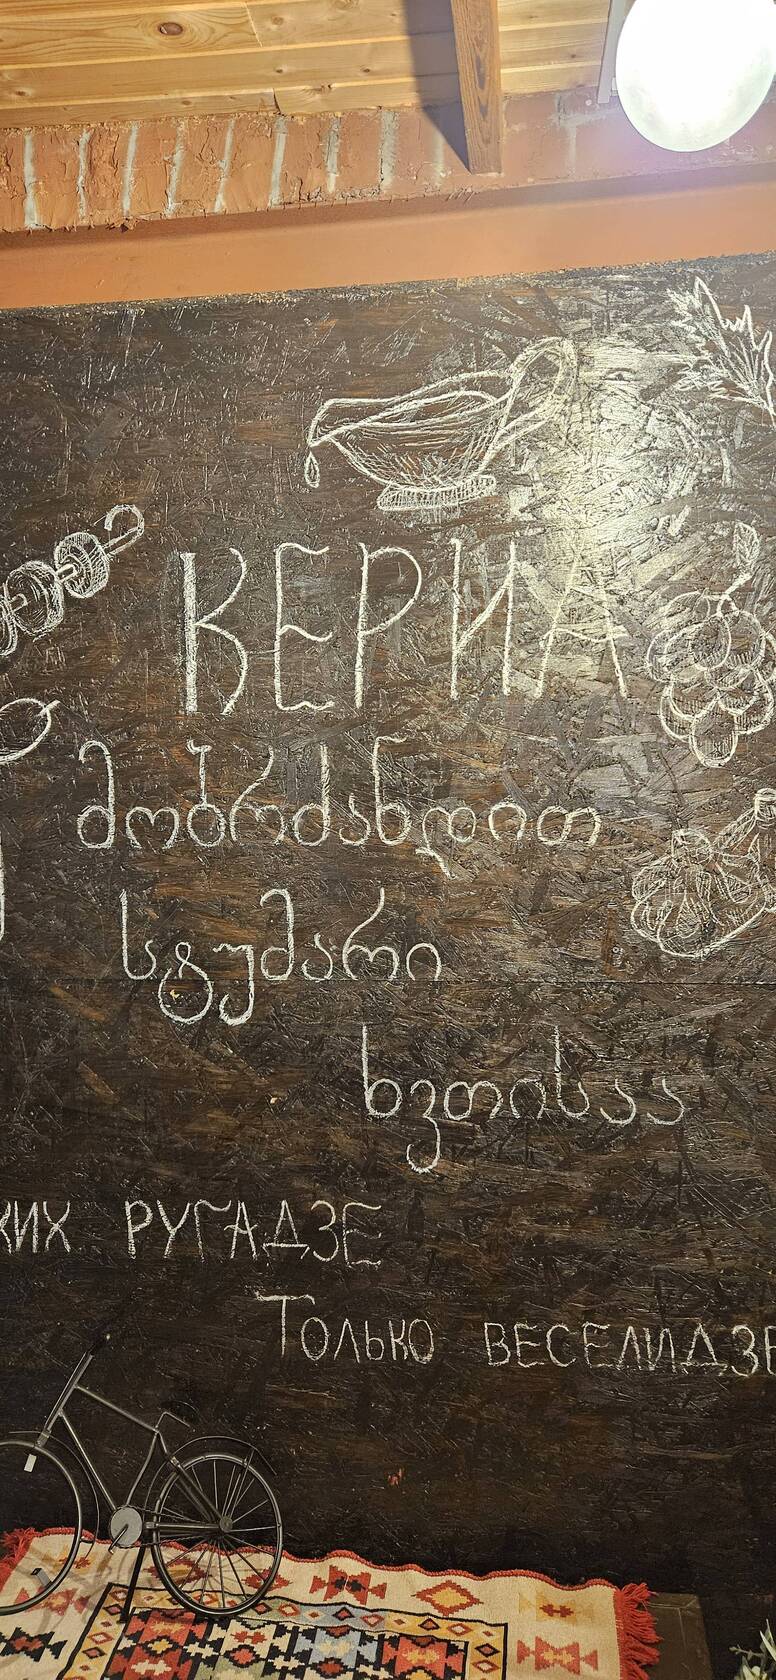 КЕРИА
მობრძანდით
სტუმარი
ხვთისაა
РУГАДЗЕ
Только ВЕСЕЛИДЗЕ